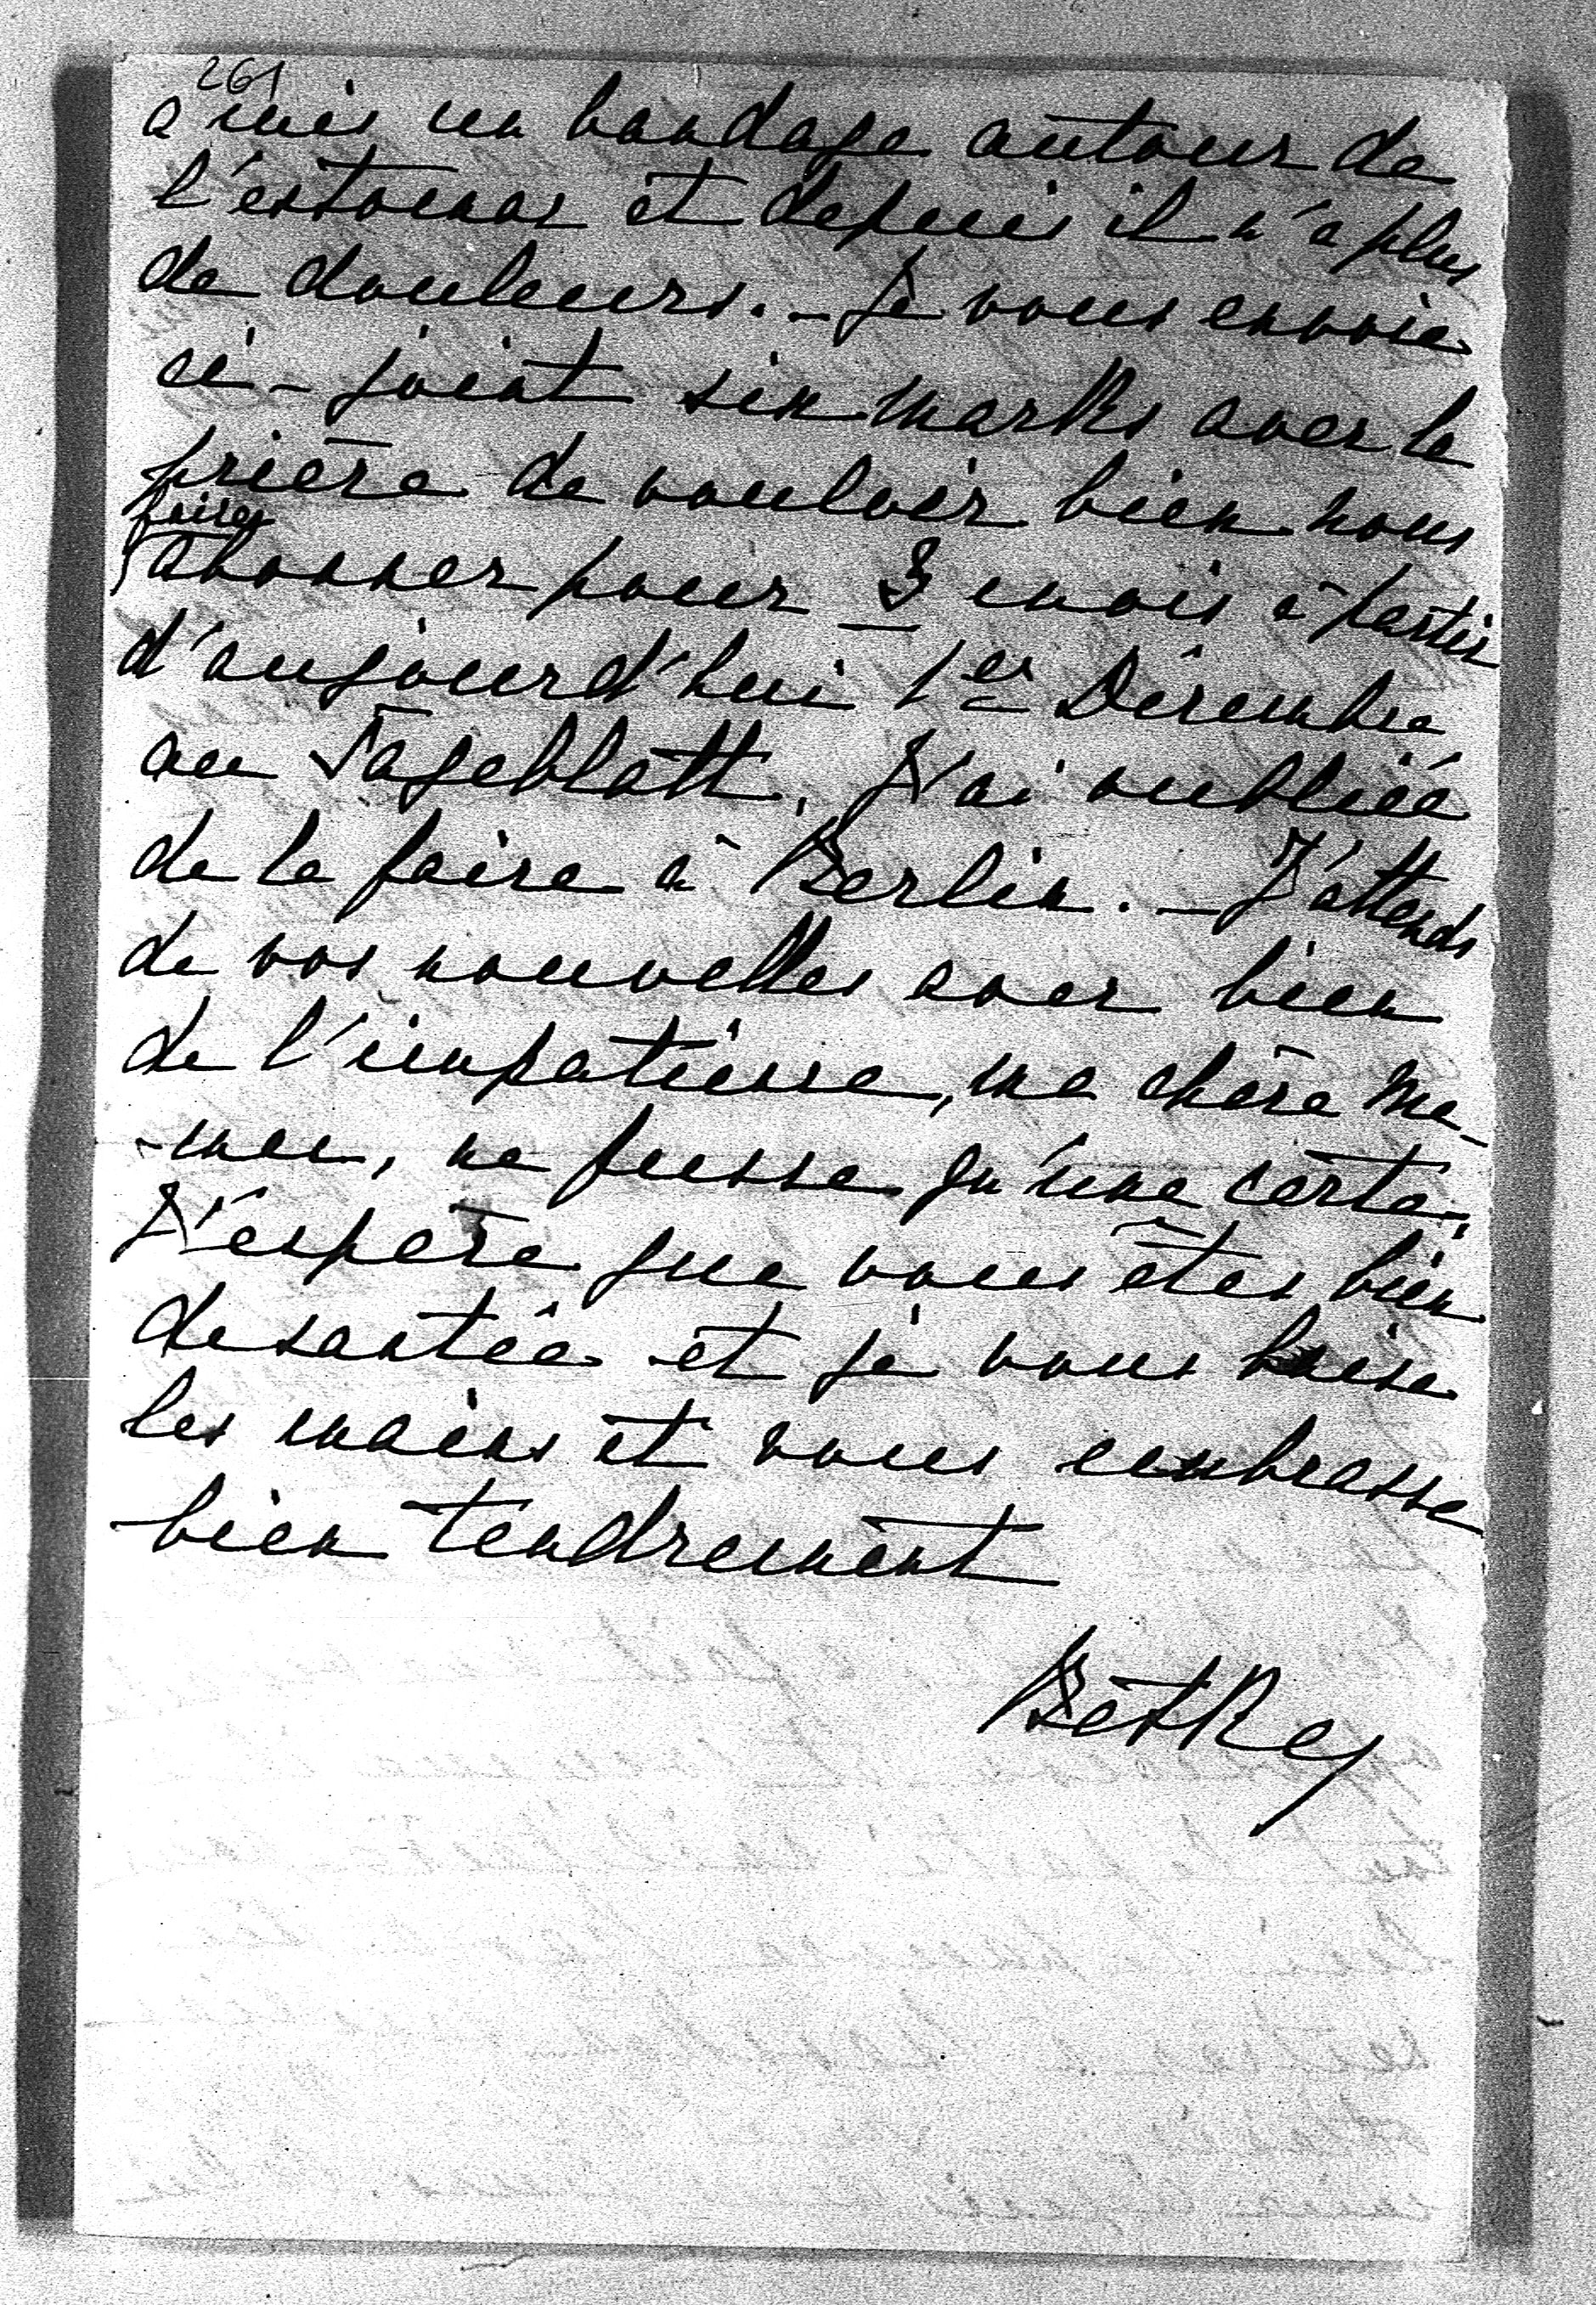 261
a mis un bandage autour de
l'estomac et depuis il n'a plus
de douleurs. – Je vous envoie
ci-joint six marks avec la
prière de vouloir bien nous
faire
abonner pour 3 mois à partir
d'aujourd'hui 1er Décembre
au Tageblatt. J'ai oubliée
de le faire à Berlin. – J'attends
de vos nouvelles avec bien
de l'impatience, ma chère Ma-
-man, ne fusse qu'une carte.
J'espère que vous êtes bien
de santée et je vous baise
les mains et vous embrasse
bien tendrement
Betkey